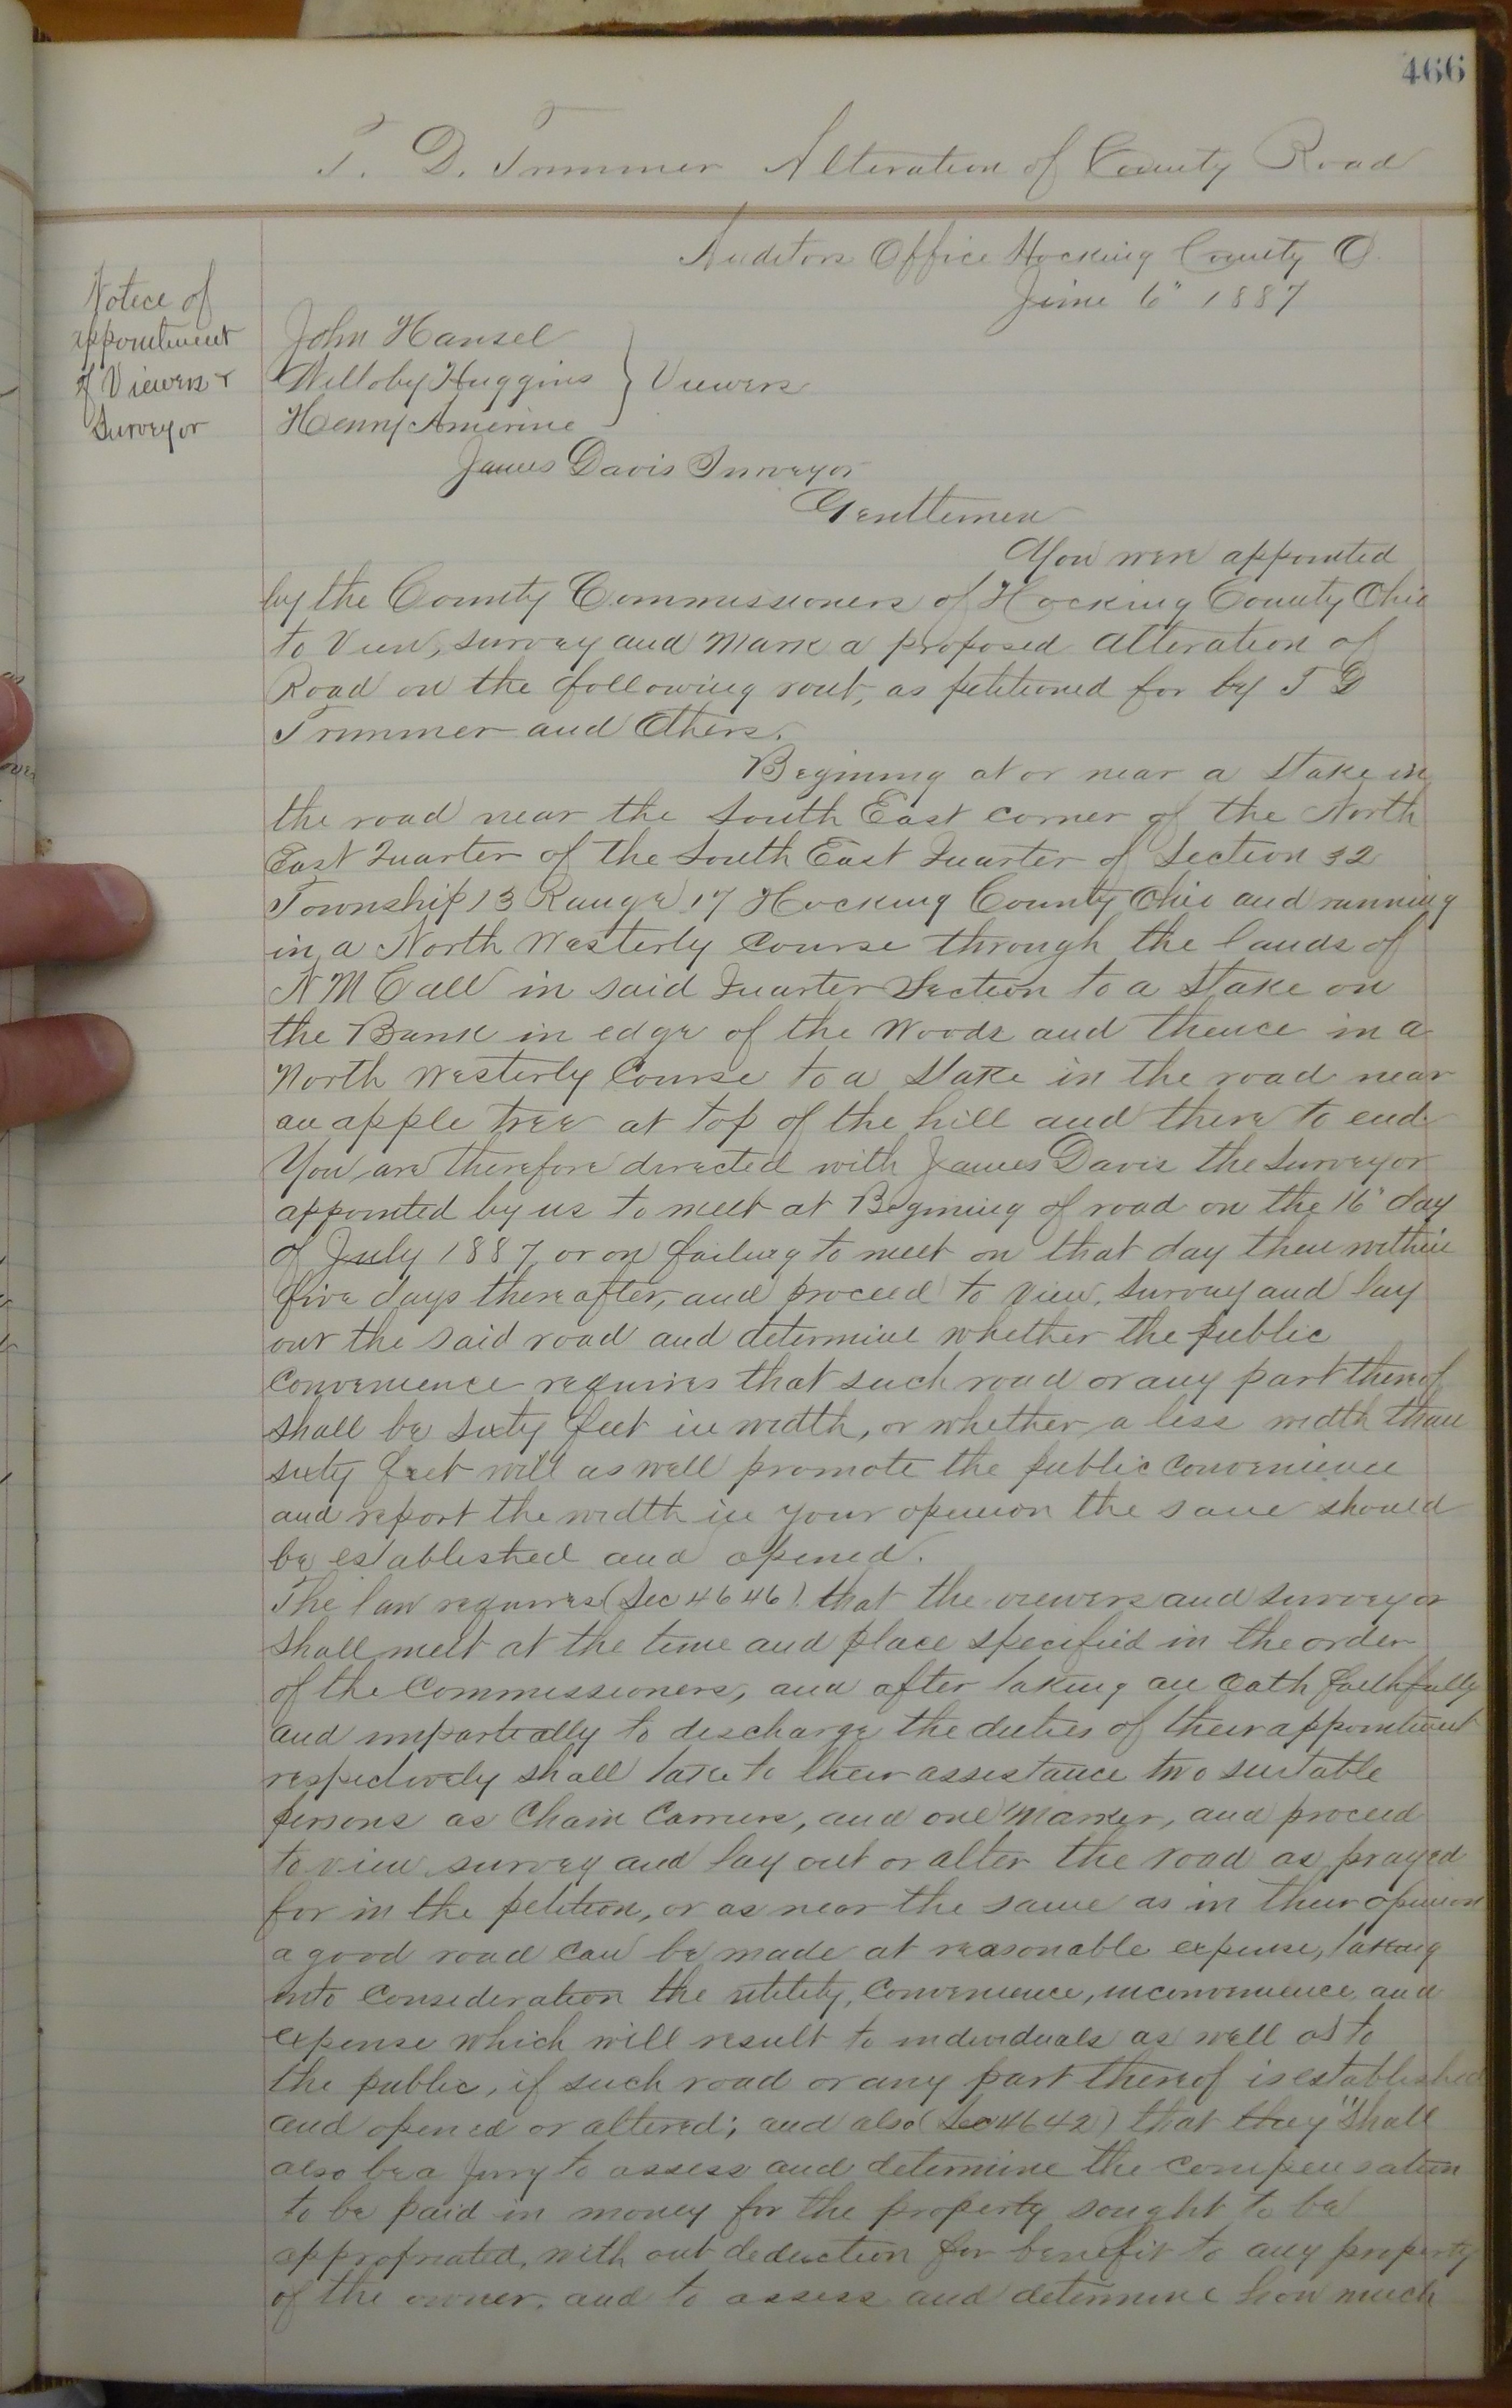 466
T. D. Trimmer Alteration of County Road
Auditors Office Hocking County O.
June 6" 1887
Notice of
appointment
of Viewers &
Surveyor
John Hansel
Willoby Huggins } Viewers
Henry Amerine
James Davis Surveyor
Gentlemen
You were appointed
by the County Commissioners of Hocking County Ohio
to View, survey and Mark a proposed alteration of
Road on the following rout, as petitioned for by T D
Trimmer and Others.
Begining at or near a Stake in
the road near the South East corner of the North
East Quarter of the South East Quarter of Section 32
Township 13 Range 17 Hocking County Ohio and running
in a North Westerly Course through the lands of
N M Call in said Quarter Section to a Stake on
the Bank in edge of the Woods and thence in a
North Westerly Course to a Stake in the road near
an apple tree at top of the hill and there to end
You are therefore directed with James Davis the Surveyor
appointed by us to meet at Begining of road on the 16" day
of July 1887, or on failing to meet on that day then within
five days thereafter, and proceed to View, Survey and lay
out the said road and determine whether the public
Convenience requires that such road or any part thereof
shall be Sixty feet in width, or whether a less width than
sixty feet will as well promote the public convenience
and report the width in your opinion the same should
be established and opened.
The law requires (Sec 4646) that the viewers and Surveyor
shall meet at the time and place specified in the order
of the Commissioners, and after taking an oath faithfully
and impartially to discharge the duties of their appointment
respectively shall take to their assistance two suitable
persons as Chain Carriers, and one Marker, and proceed
to view survey and lay out or alter the road as prayed
for in the petition, or as near the same as in their opinion
a good road can be made at reasonable expense, taking
into Consideration the utility, Convenience, inconvenience, and
expense which will result to individuals as well as to
the public, if such road or any part thereof is established
and opened or altered; and also (Sec 4642) that they "Shall
also be a Jury to assess and determine the compensation
to be paid in money for the property sought to be
appropriated, with out deduction for benefit to any property
of the owner, and to assess and determine how much